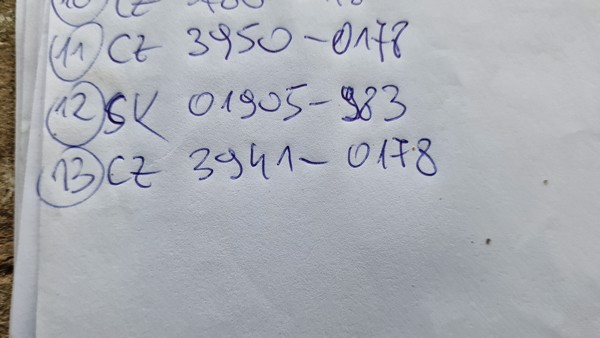 11 CZ 3950-0178
12 SK 01905-983
13 CZ 3941-0178